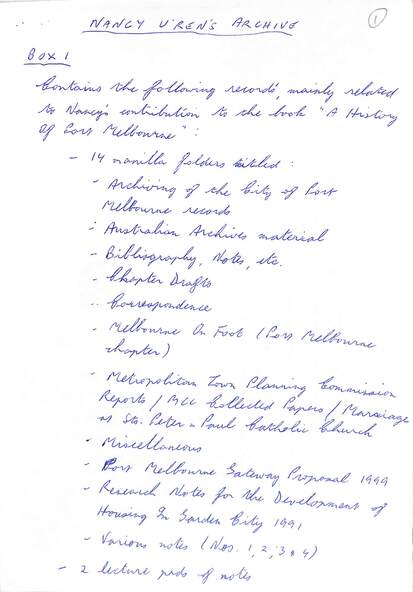 NANCY U'REN'S ARCHIVE
1
BOX 1
Contains the following records, mainly related
to Nancy's contribution to the book "A History
of Port Melbourne" :
- 14 manilla folders titled :
- Archiving of the City of Port
Melbourne records
- Australian Archives material
- Bibliography, Notes, etc.
- Chapter Drafts
- Correspondence
- Melbourne On Foot (Port Melbourne
chapter)
- Metropolitan Town Planning Commission
Reports / MCC Collected Papers / Marriage
at Sts. Peter & Paul Catholic Church
- Miscellaneous
- Port Melbourne Gateway Proposal 1999
- Research Notes for the Development of
Housing In Garden City 1991
- Various notes (Nos. 1, 2, 3 & 4)
- 2 lecture pads of notes